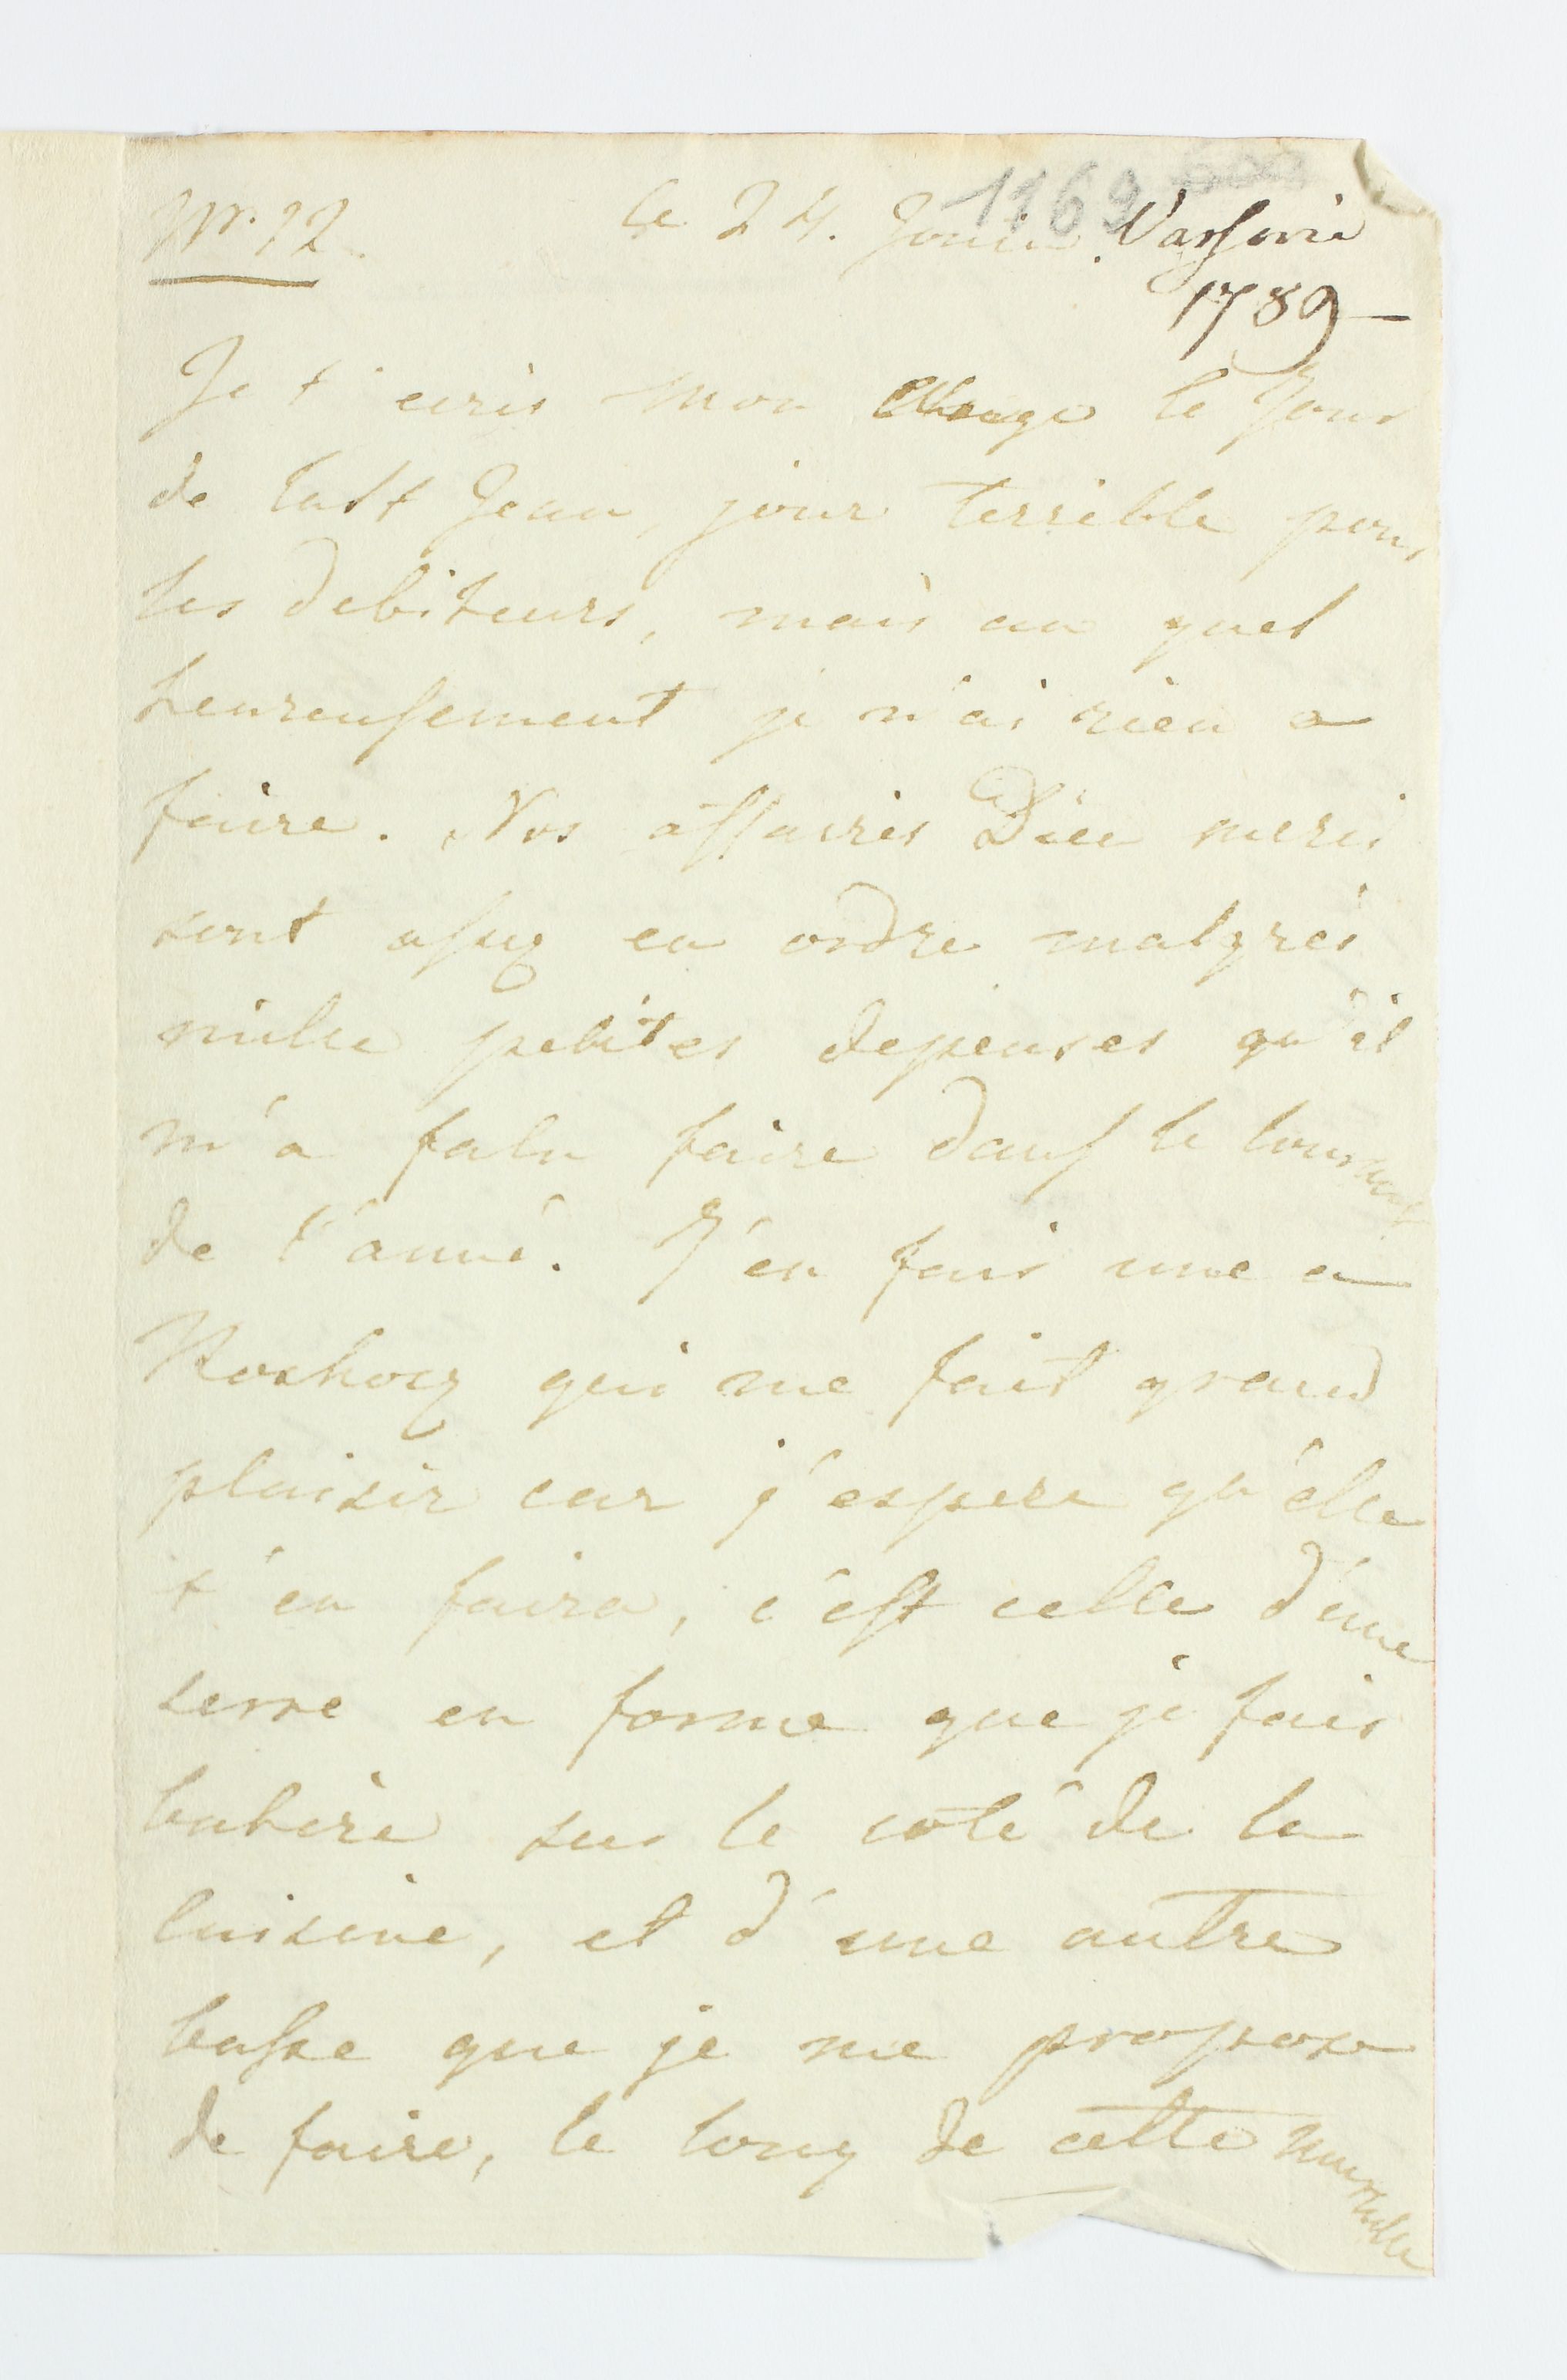 Nr. 12. le 24. Jouin. Varsovie
1169
1789
Je t'ecris mon Ange le Jour
de la St Jean, jour terrible pour
les debiteurs, mais au quel
heureusement je n'ai rien a
faire. Nos affaires Dieu merci
sont assez en ordre malgrés
mille petites depenses qu'il
m'a falu faire dans le courant
de l'anné. J'en fais une a
qui me fait grand
plaisir car j'espere qu'elle
t'en faira, c'est celle d'une
serre en forme que je fais
bahire sur le coté de la
cuisine, et d'une autre
basse que je me propose
de faire, le long de cette muraille